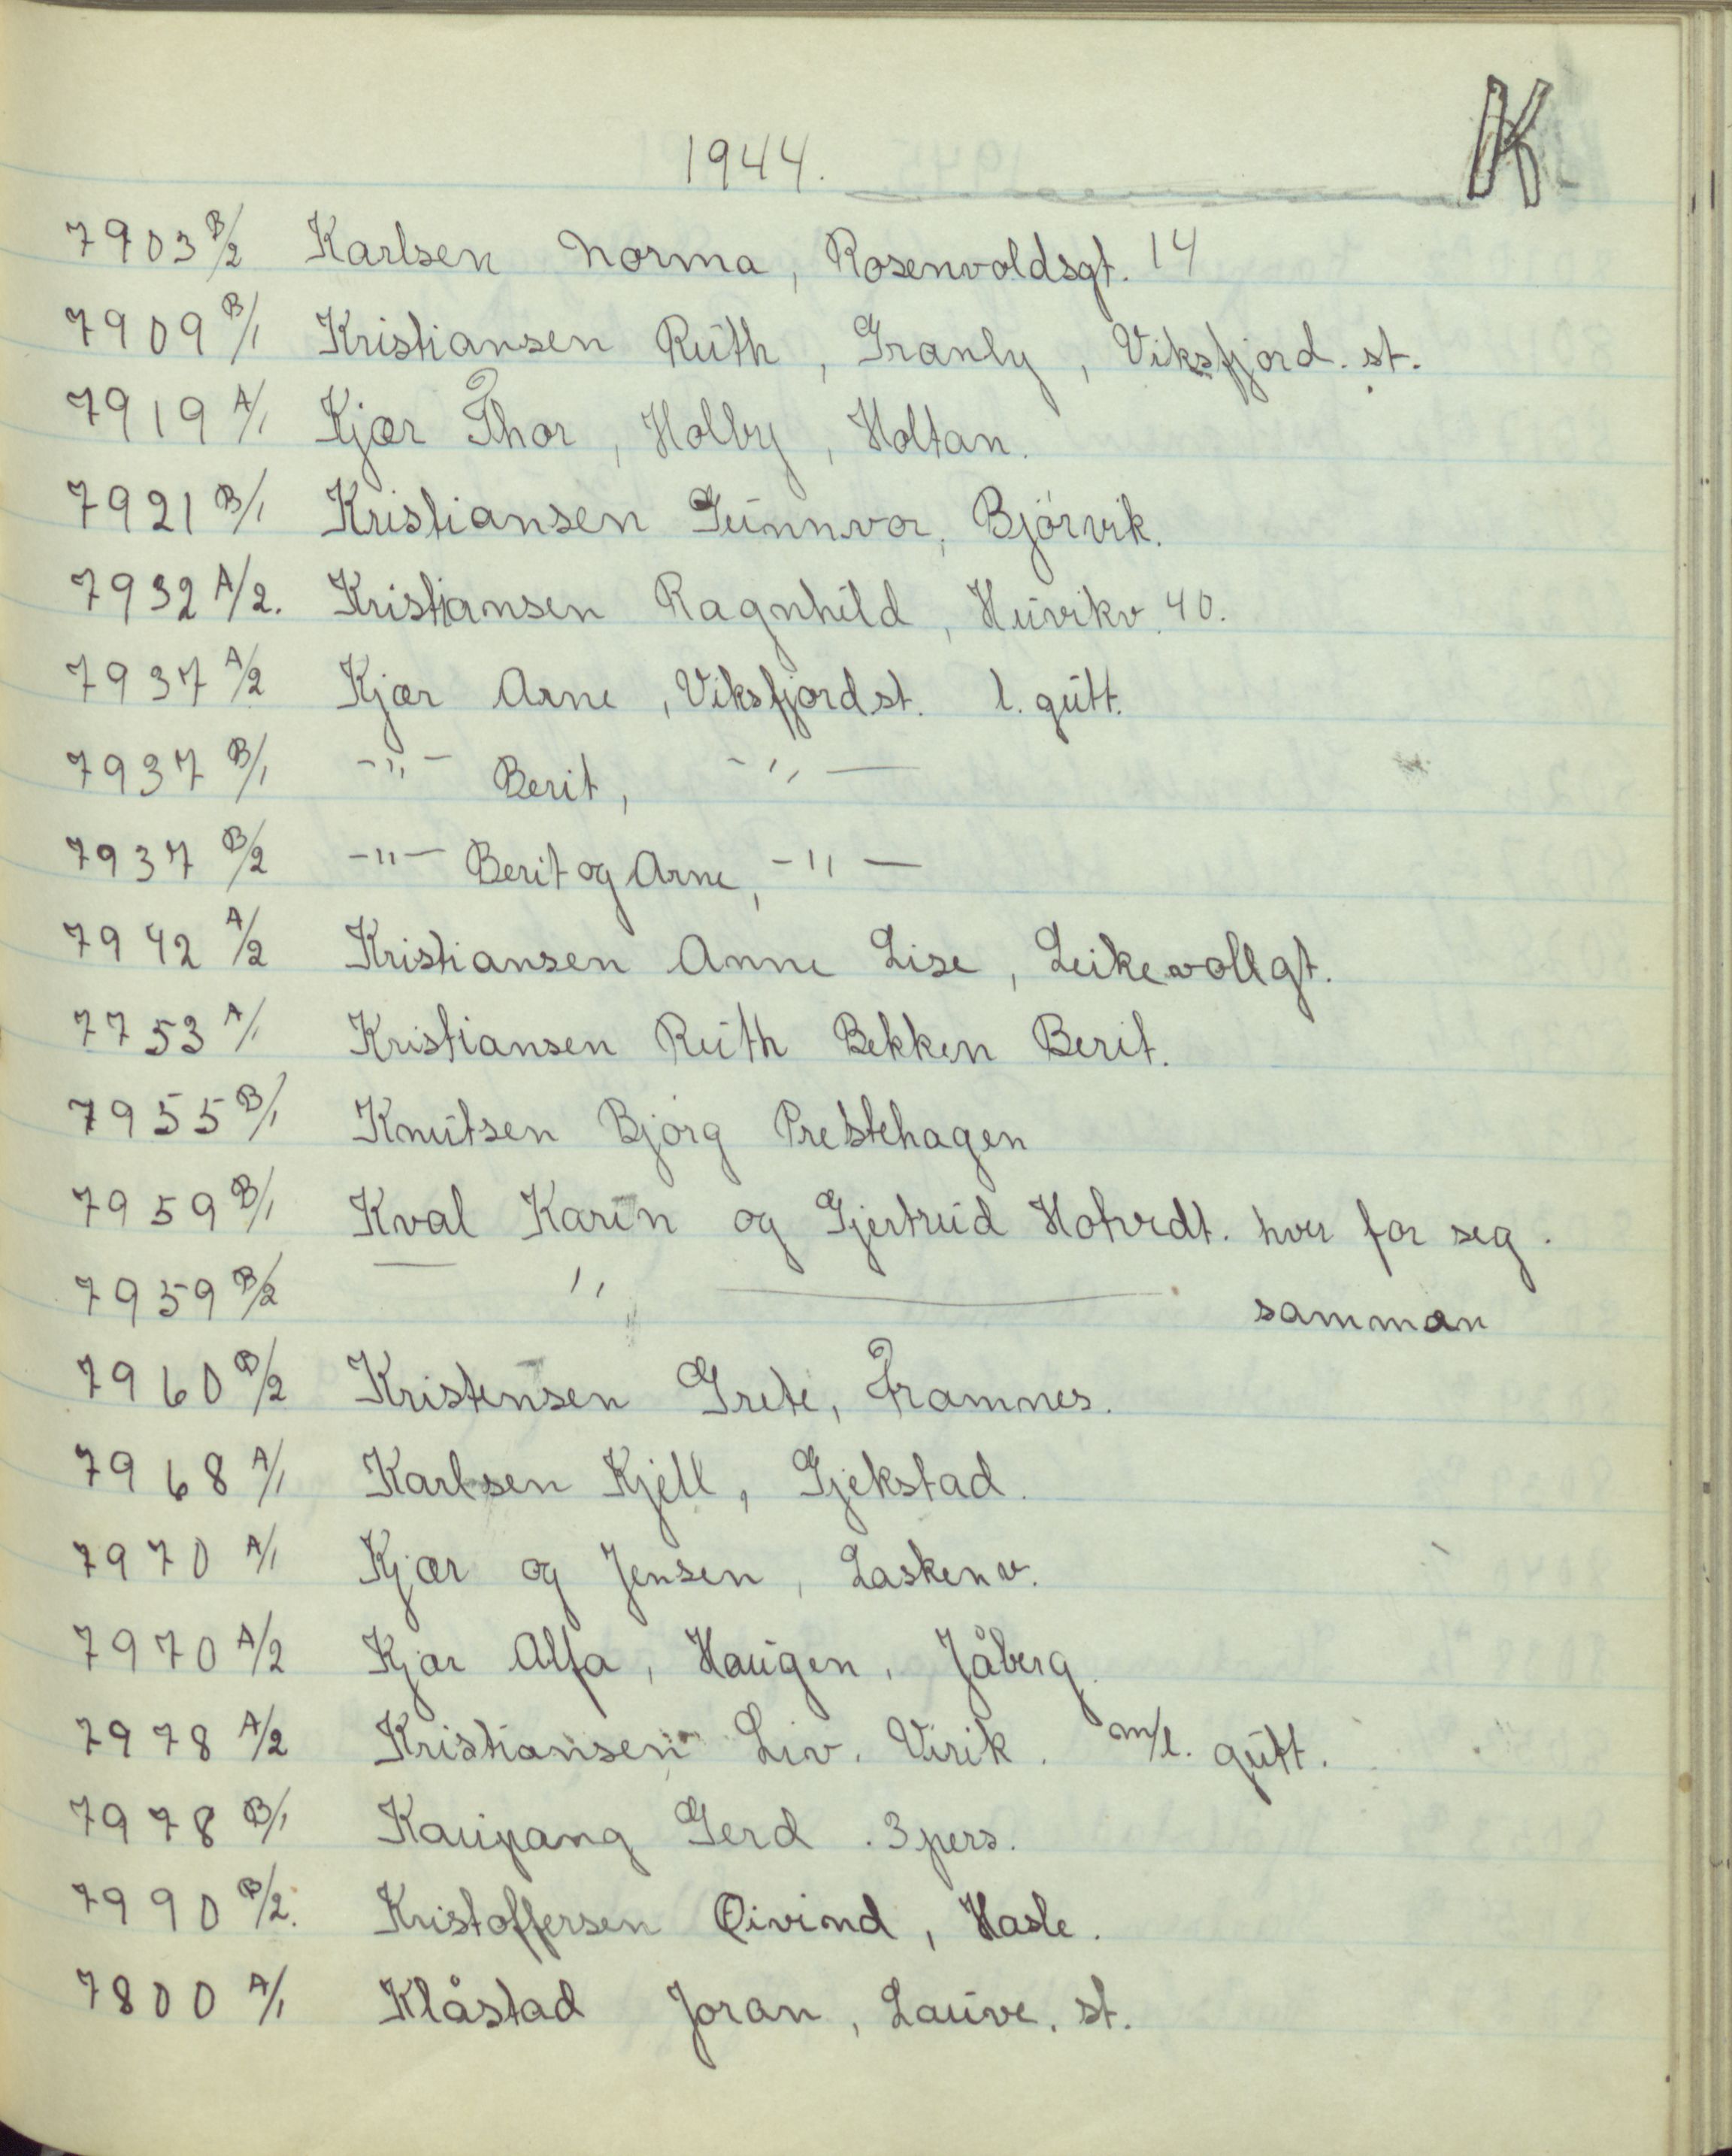 K
1944.
7903 B/2 Karlsen Norma, Rosenvoldsgt. 14
7909 B/1 Kristiansen Ruth, Granly, Viksfjord. st.
7919 A/1 Kjær Thor, Holby, Holtan.
7921 B/1 Kristiansen Gunnvor, Bjørvik.
7932 A/2. Kristiansen Ragnhild, Huvikv. 40.
7937 A/2 Kjær Arne, Viksfjord st. l. gutt.
7937 B/1 -"- Berit, -"-
7937 B/2 -"- Berit og Arne, -"-
7942 A/2 Kristiansen Anne Lise, Leikevollgt.
7753 A/1 Kristiansen Ruth Bekken Berit.
7955 B/1 Knutsen Bjørg Prestehagen
7959 B/1 Kval Karin og Gjertrud Hotvedt. hver for seg.
7959 B/2 — " — samman
7960 B/2 Kristensen Grete, Framnes.
7968 A/1 Karlsen Kjell, Gjekstad.
7970 A/1 Kjær og Jensen, Laskenv.
7970 A/2 Kjær Alfa, Haugen, Jåberg.
7978 A/2 Kristiansen Liv. Virik. m/l. gutt.
7978 B/1 Kaupang Gerd. 3 pers.
7990 B/2. Kristoffersen Øivind, Hasle.
7800 A/1 Klåstad Joran, Lauve. st.